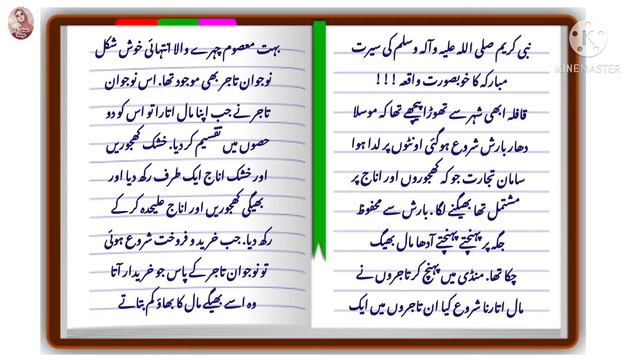 نبی کریم صلی اللہ علیہ وآلہ وسلم کی سیرت
مبارکہ کا خوبصورت واقعہ !!!
قافلہ ابھی شہر سے تھوڑا پیچھے تھا کہ موسلا
دھار بارش شروع ہو گئی اونٹوں پر لدا ہوا
سامان تجارت جو کہ کھجوروں اور اناج پر
مشتمل تھا بھیگنے لگا۔ بارش سے محفوظ
جگہ پر پہنچتے پہنچتے آدھا مال بھیگ
چکا تھا۔ منڈی میں پہنچ کر تاجروں نے
مال اتارنا شروع کیا ان تاجروں میں ایک
بہت معصوم چہرے والا انتہائی خوش شکل
نوجوان تاجر بھی موجود تھا۔ اس نوجوان
تاجر نے جب اپنا مال اتارا تو اس کو دو
حصوں میں تقسیم کر دیا۔ خشک کھجوریں
اور خشک اناج ایک طرف رکھ دیا اور
بھیگی کھجوریں اور اناج علیحدہ کر کے
رکھ دیا۔ جب خرید و فروخت شروع ہوئی
تو نوجوان تاجر کے پاس جو خریدار آتا
وہ اسے بھیگے مال کا بھاؤ کم بتاتے
KINEMASTER